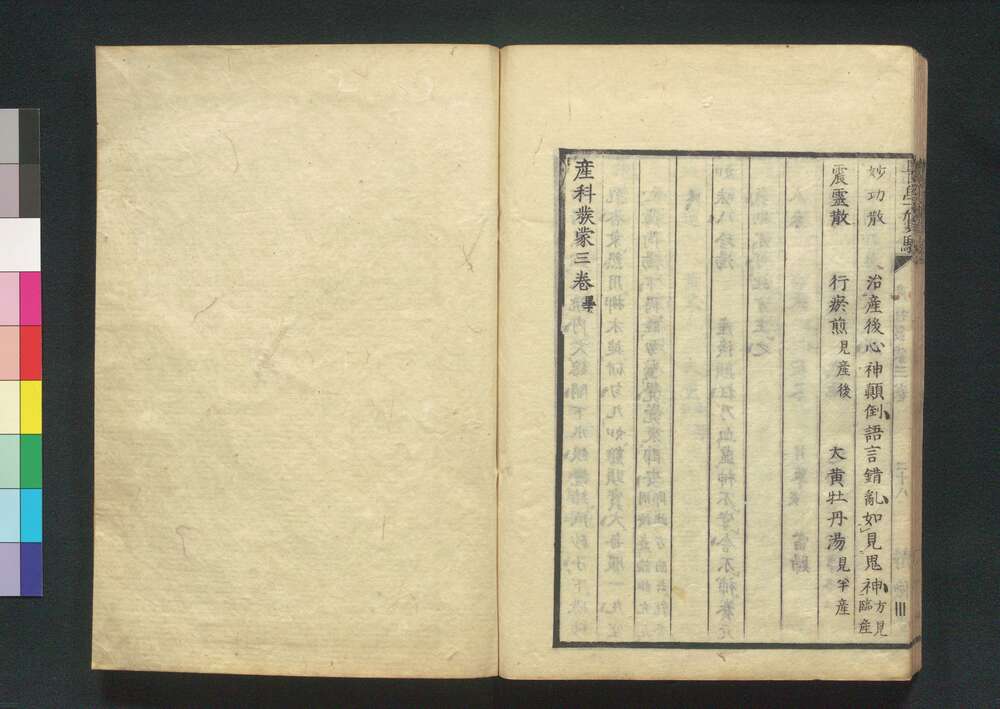 妙功散　治産後心神顚倒語言錯亂如見鬼神方見臨産
震靈散　行瘀煎見産後　大黄牡丹湯見半産
産科發蒙三卷畢